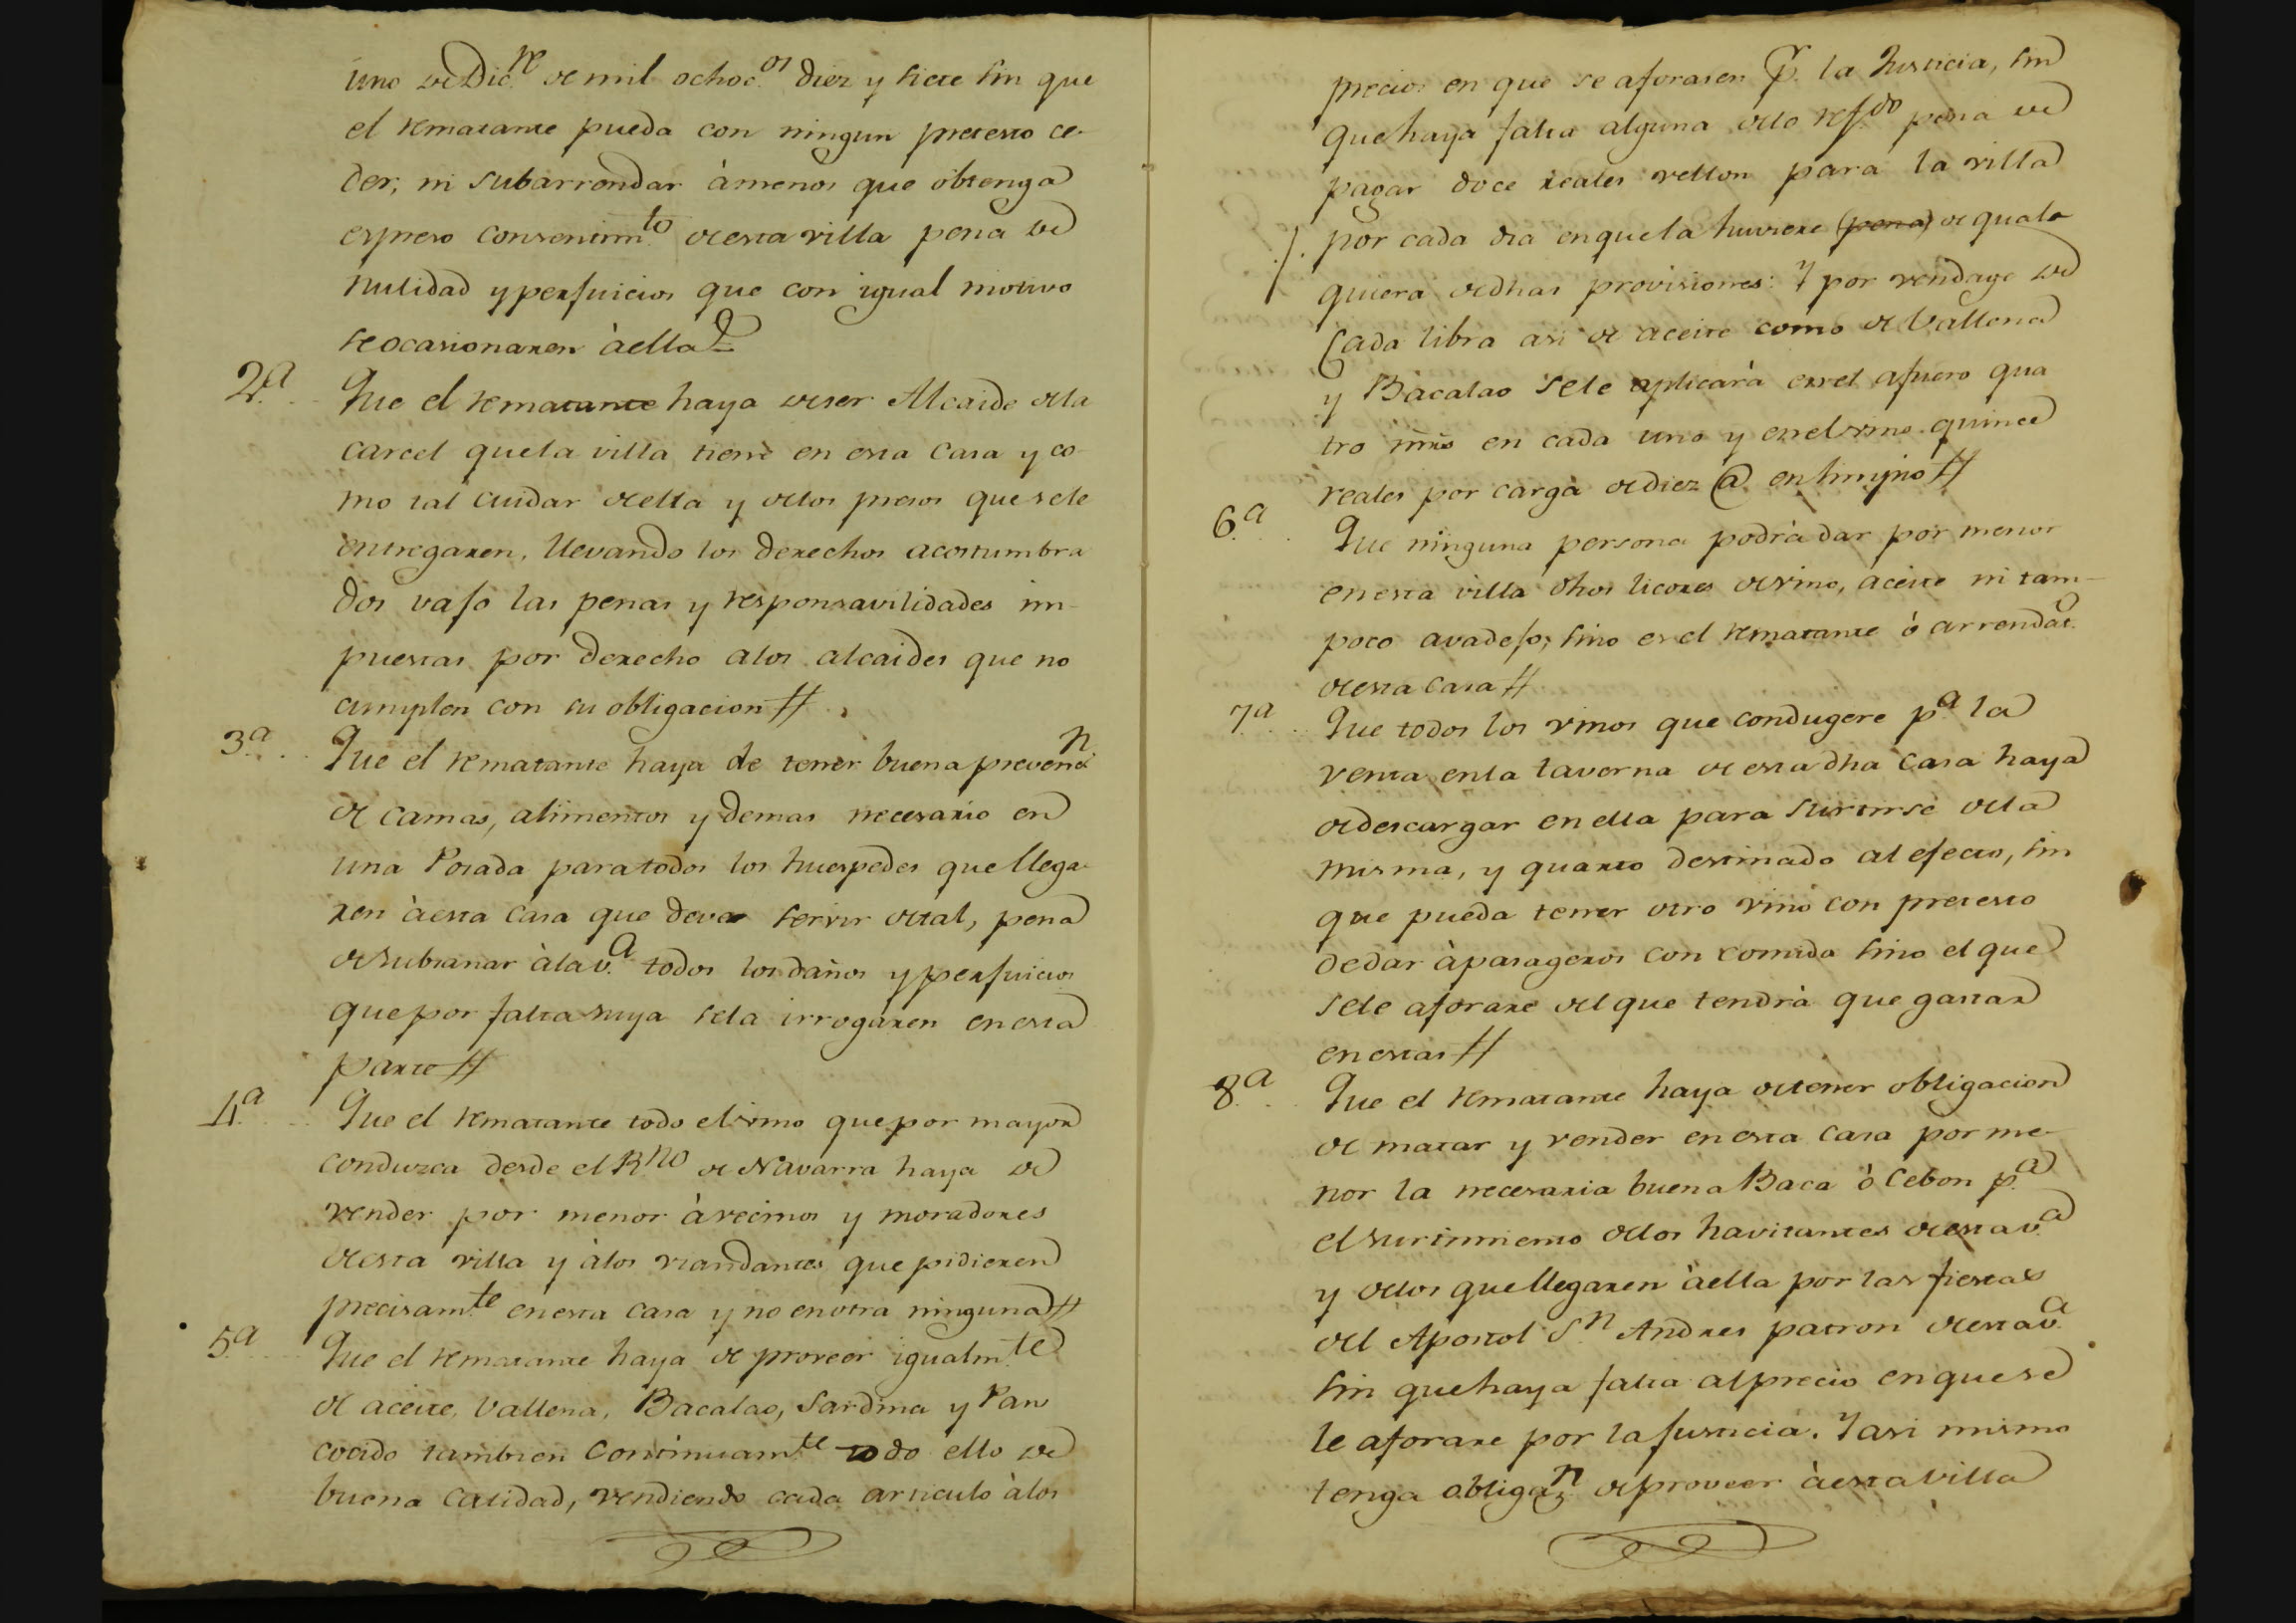 uno de Dic.re de mil ochoc.os diez y siete sin que
el rematante pueda con ningun pretesto ce-
der, ni subarrondar àmenos que obtenga
espreso consentim.to de esta villa pena de
nulidad y perjuicios que con igual motivo
se ocasionaren àella=
2.a Que el rematante haya de ser Alcaide de la
carcel que la villa tiene en esta Casa y co
mo tal cuidar de ella y de los presos que se le
entregaren, llevando los derechos acostumbra
dos vajo las penas y responsavilidades im-
puestas por derecho a los alcaides que no
cumplen con su obligacion //
3.a Que el rematante haya de tener buena prevenc.n
de camas, alimentos y demas necesario en
una Posada para todos los huespedes que llega-
ren àesta Casa que deva servir de tal, pena
de subsanar à la v.a todos los daños y perjuicios
que por falta suya se la irrogaren en esta
parte //
4.a Que el rematante todo el vino que por mayor
conduzca desde el R.no de Navarra haya de
vender por menor à vecinos y moradores
de esta villa y à los viandantes que pidieren
precisam.te en esta casa y no en otra ninguna //
5.a Que el rematante haya de proveer igualm.te
de aceite, Vallena, Bacalao, Sardina y Pan
cocido tambien continuam.te todo ello de
buena calidad, vendiendo cada articulo à los
precios en que se aforasen p.r la Justicia, sin
que haya falta alguna de lo ref.do pena de
pagar doce reales vellon para la villa
por cada dia en que la huviere (pena) de quale
quiera de dhas provisiones: Y por vendage de
Cada libra asi de aceite como de Vallena
y Bacalao se le aplicarà en el afuero qua
tro mrs en cada uno y en el vino quince
reales por carga de diez @ en limpio //
6.a Que ninguna persona podrà dar por menor
en esta villa dhos licores de vino, aceite ni tam-
poco avadejo, sino es el rematante ò arrendat.o
de esta casa //
7.a Que todos los vinos que condugere p.a la
venta en la taverna de esta dha Casa haya
de descargar en ella para surtirse de la
misma, y quarto destinado al efecto, sin
que pueda tener otro vino con pretesto
de dar à pasageros con comida sino el que
se le aforare del que tendrà que gastar
en estas //
8.a Que el rematante haya de tener obligacion
de matar y vender en esta casa por me-
nor la necesaria buena Baca ò Cebon p.a
el surtimiento de los havitantes de esta v.a
y de los que llegaren àella por las fiestas
del Apostol S.n Andres patron de esta v.a
sin que haya falta al precio en que se
le aforare por la Justicia. Y asi mismo
tenga obligaz.n de proveer àesta Villa